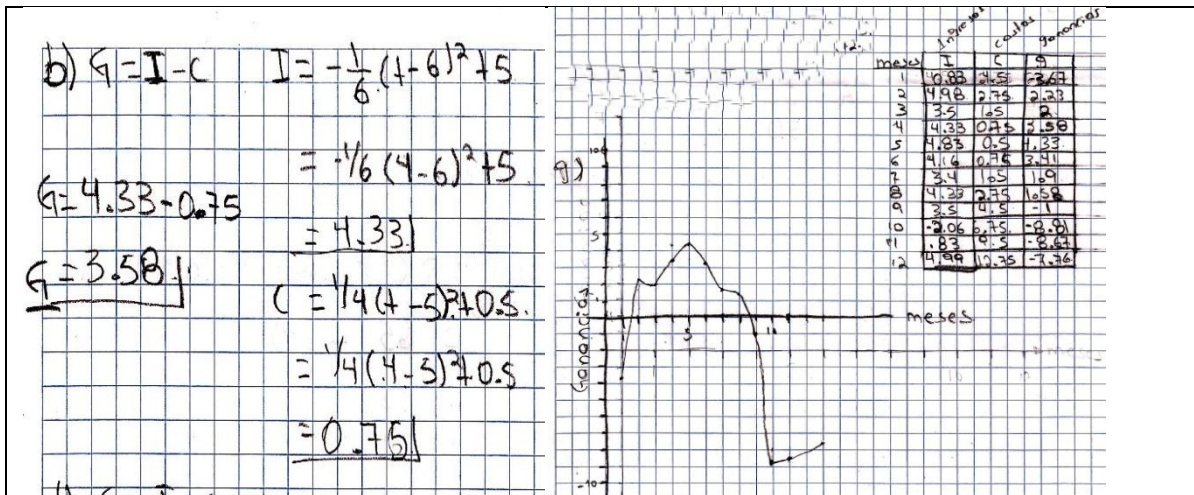 b) G = I - C
I = -1/6 (t-6)² + 5
= -1/6 (4-6)² + 5
= 4.33
G = 4.33 - 0.75
G = 3.58
C = 1/4 (t-5)² + 0.5
= 1/4 (4-5)² + 0.5
= 0.75
Ingresos costos ganancias
meses I C g
1 0.83 4.5 -3.67
2 4.98 2.75 2.23
3 3.5 1.5 2
4 4.33 0.75 3.58
5 4.83 0.5 4.33
6 4.16 0.75 3.41
7 3.4 1.5 1.9
8 4.33 2.75 1.58
9 3.5 4.5 -1
10 -2.06 6.75 -8.81
11 .83 9.5 -8.67
12 4.99 12.75 -7.76
g)
10
5
Ganancias
5
10
meses
-10